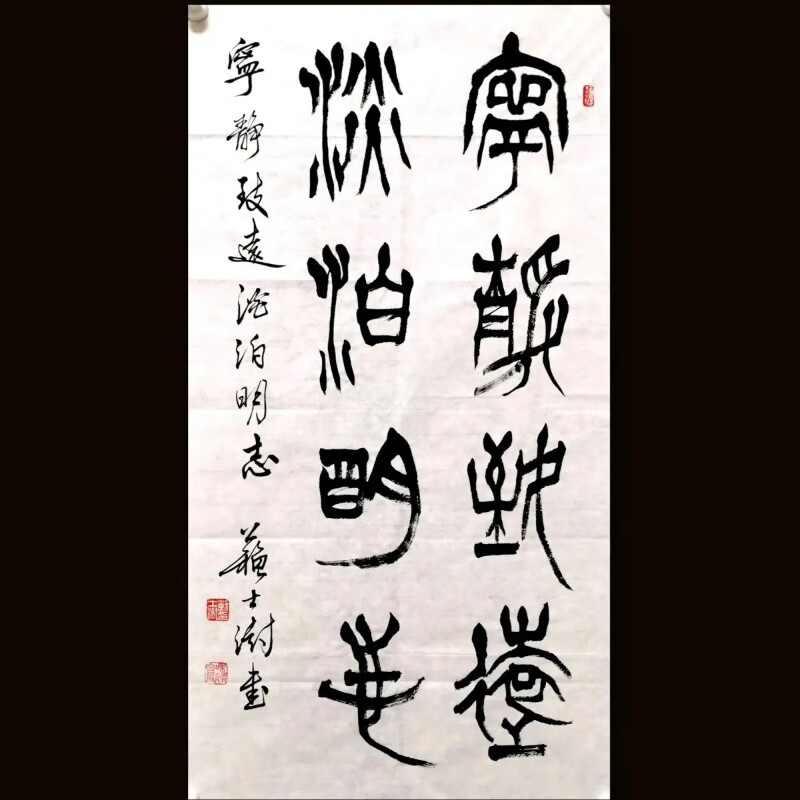 寧靜致遠
淡泊明志
寧靜致遠澹泊明志 蘇士澍書